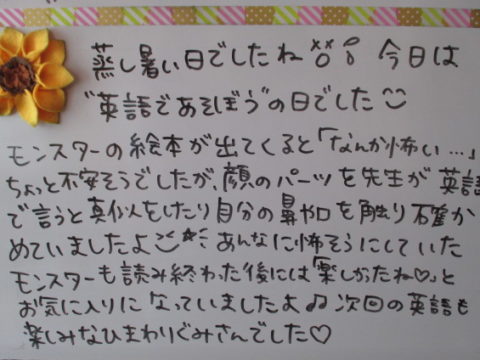 蒸し暑い日でしたね 今日は
"英語であそぼう"の日でした
モンスターの絵本が出てくると「なんか怖い…」
ちょっと不安そうでしたが、顔のパーツを先生が英語
で言うと真似をしたり自分の鼻や口を触り確か
めていましたよ あんなに怖そうにしていた
モンスターも読み終わった後には「楽しかったね♡」と
お気に入りになっていましたよ♫ 次回の英語も
楽しみなひまわりぐみさんでした♡